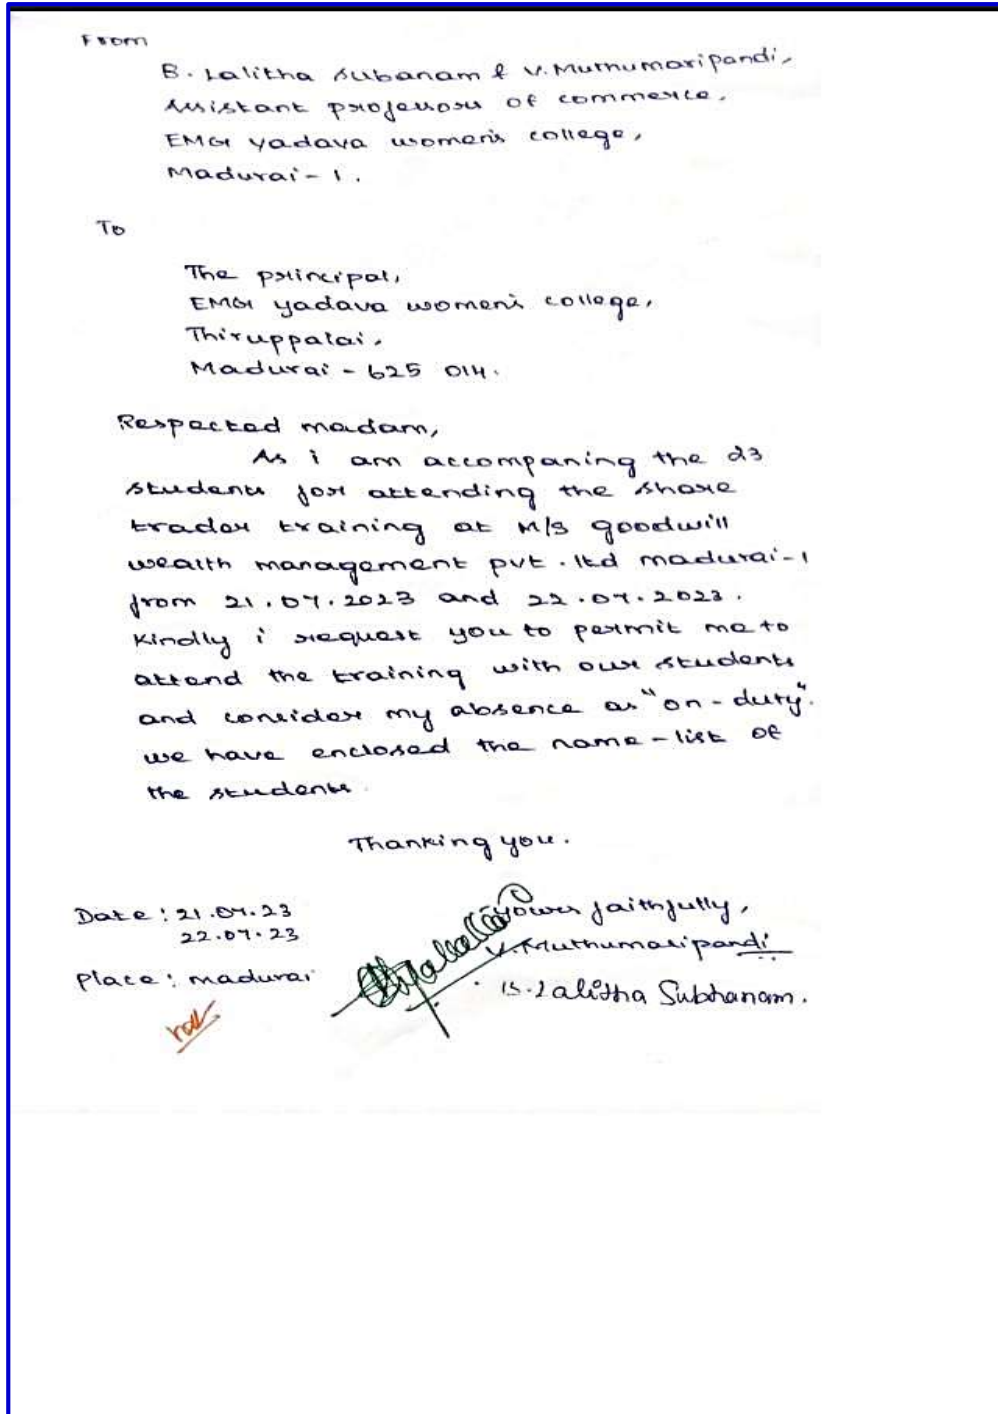 From
B. Lalitha Subanam & V. Muthumaripandi,
Assistant professors of commerce,
EMG yadava women's college,
Madurai - 1.
To
The principal,
EMG yadava women's college,
Thiruppalai,
Madurai - 625 014.
Respected madam,
As i am accompaning the 23
students for attending the share
trader training at M/s goodwill
wealth management pvt. ltd madurai-1
from 21.07.2023 and 22.07.2023.
Kindly i request you to permit me to
attend the training with our students
and consider my absence as "on-duty".
we have enclosed the name-list of
the students.
Thanking you.
Date: 21.07.23
22.07.23
Yours faithfully,
V. Muthumaripandi
Place: madurai
B. Lalitha Subhanam.